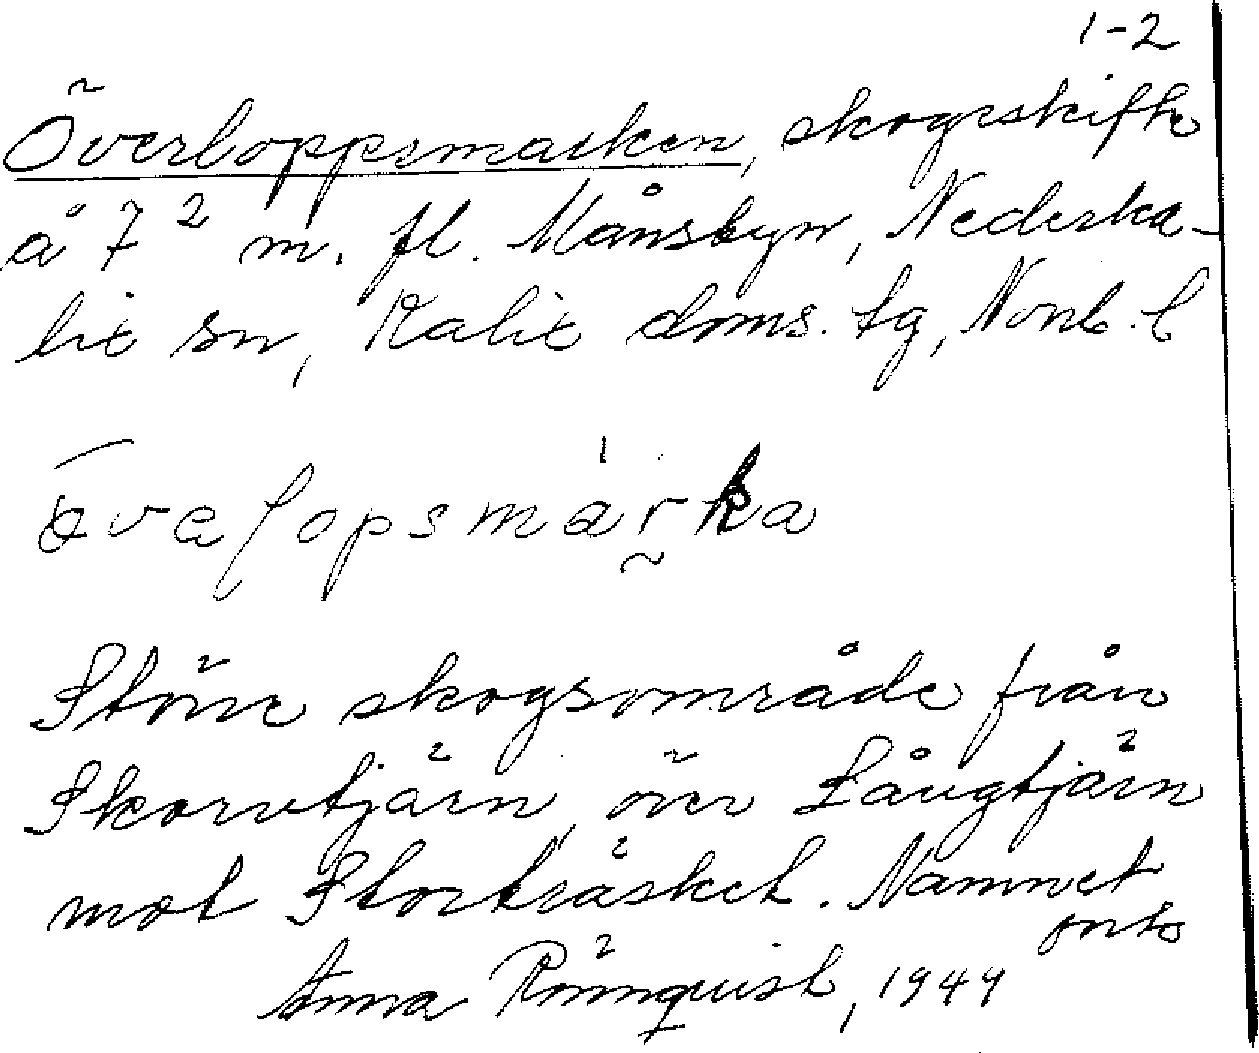 1-2
Överloppsmarken, skogsskifte
å 7² m. fl. Månsbyn, Nederka-
lix sn, Kalix doms. tg, Norrb. l
övaḷopsmárka
Större skogsområde från
Skorvtjärn över Långtjärn
mot Storträsket. Namnet
Anna Rönnquist, 1944